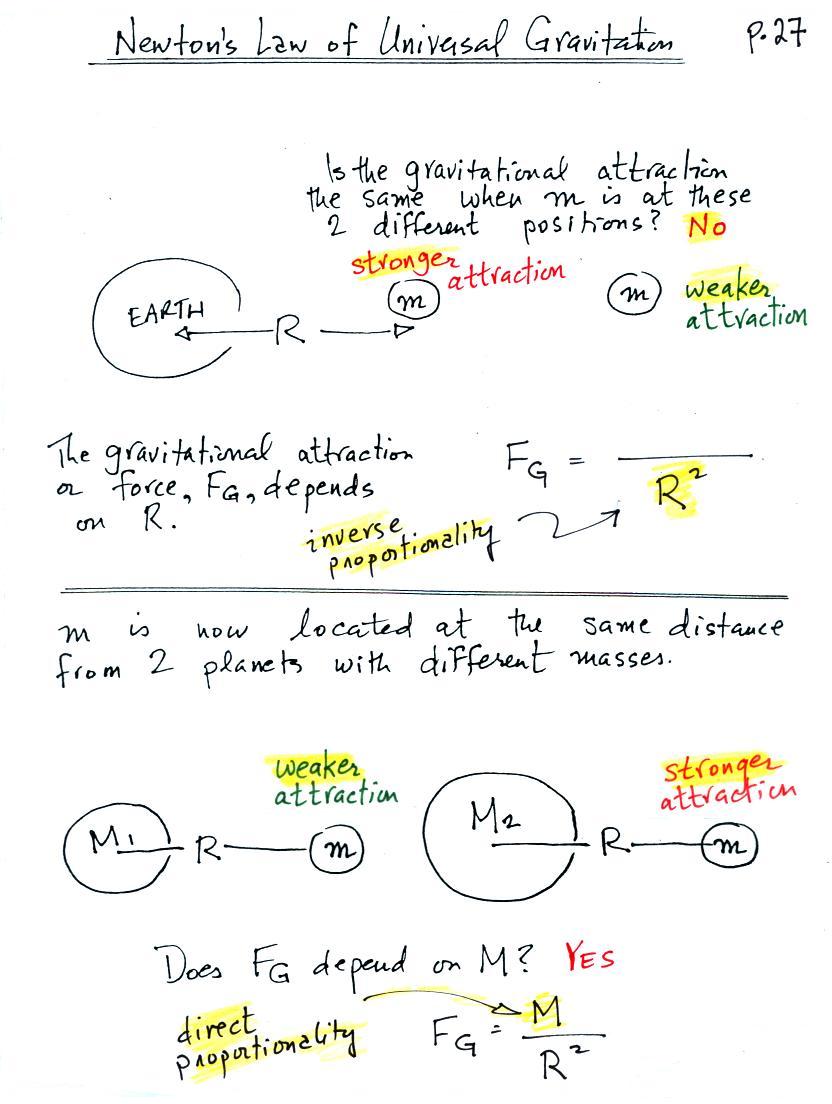 Newton's Law of Universal Gravitation
p.27
Is the gravitational attraction
the same when m is at these
2 different positions? No
stronger
attraction
m
m
weaker
attraction
EARTH
R
The gravitational attraction
or force, FG, depends
on R.
FG =
R²
inverse
proportionality
m is now located at the same distance
from 2 planets with different masses.
weaker
attraction
stronger
attraction
M1 R m
M2 R m
Does FG depend on M? YES
direct
proportionality
FG = M
R²